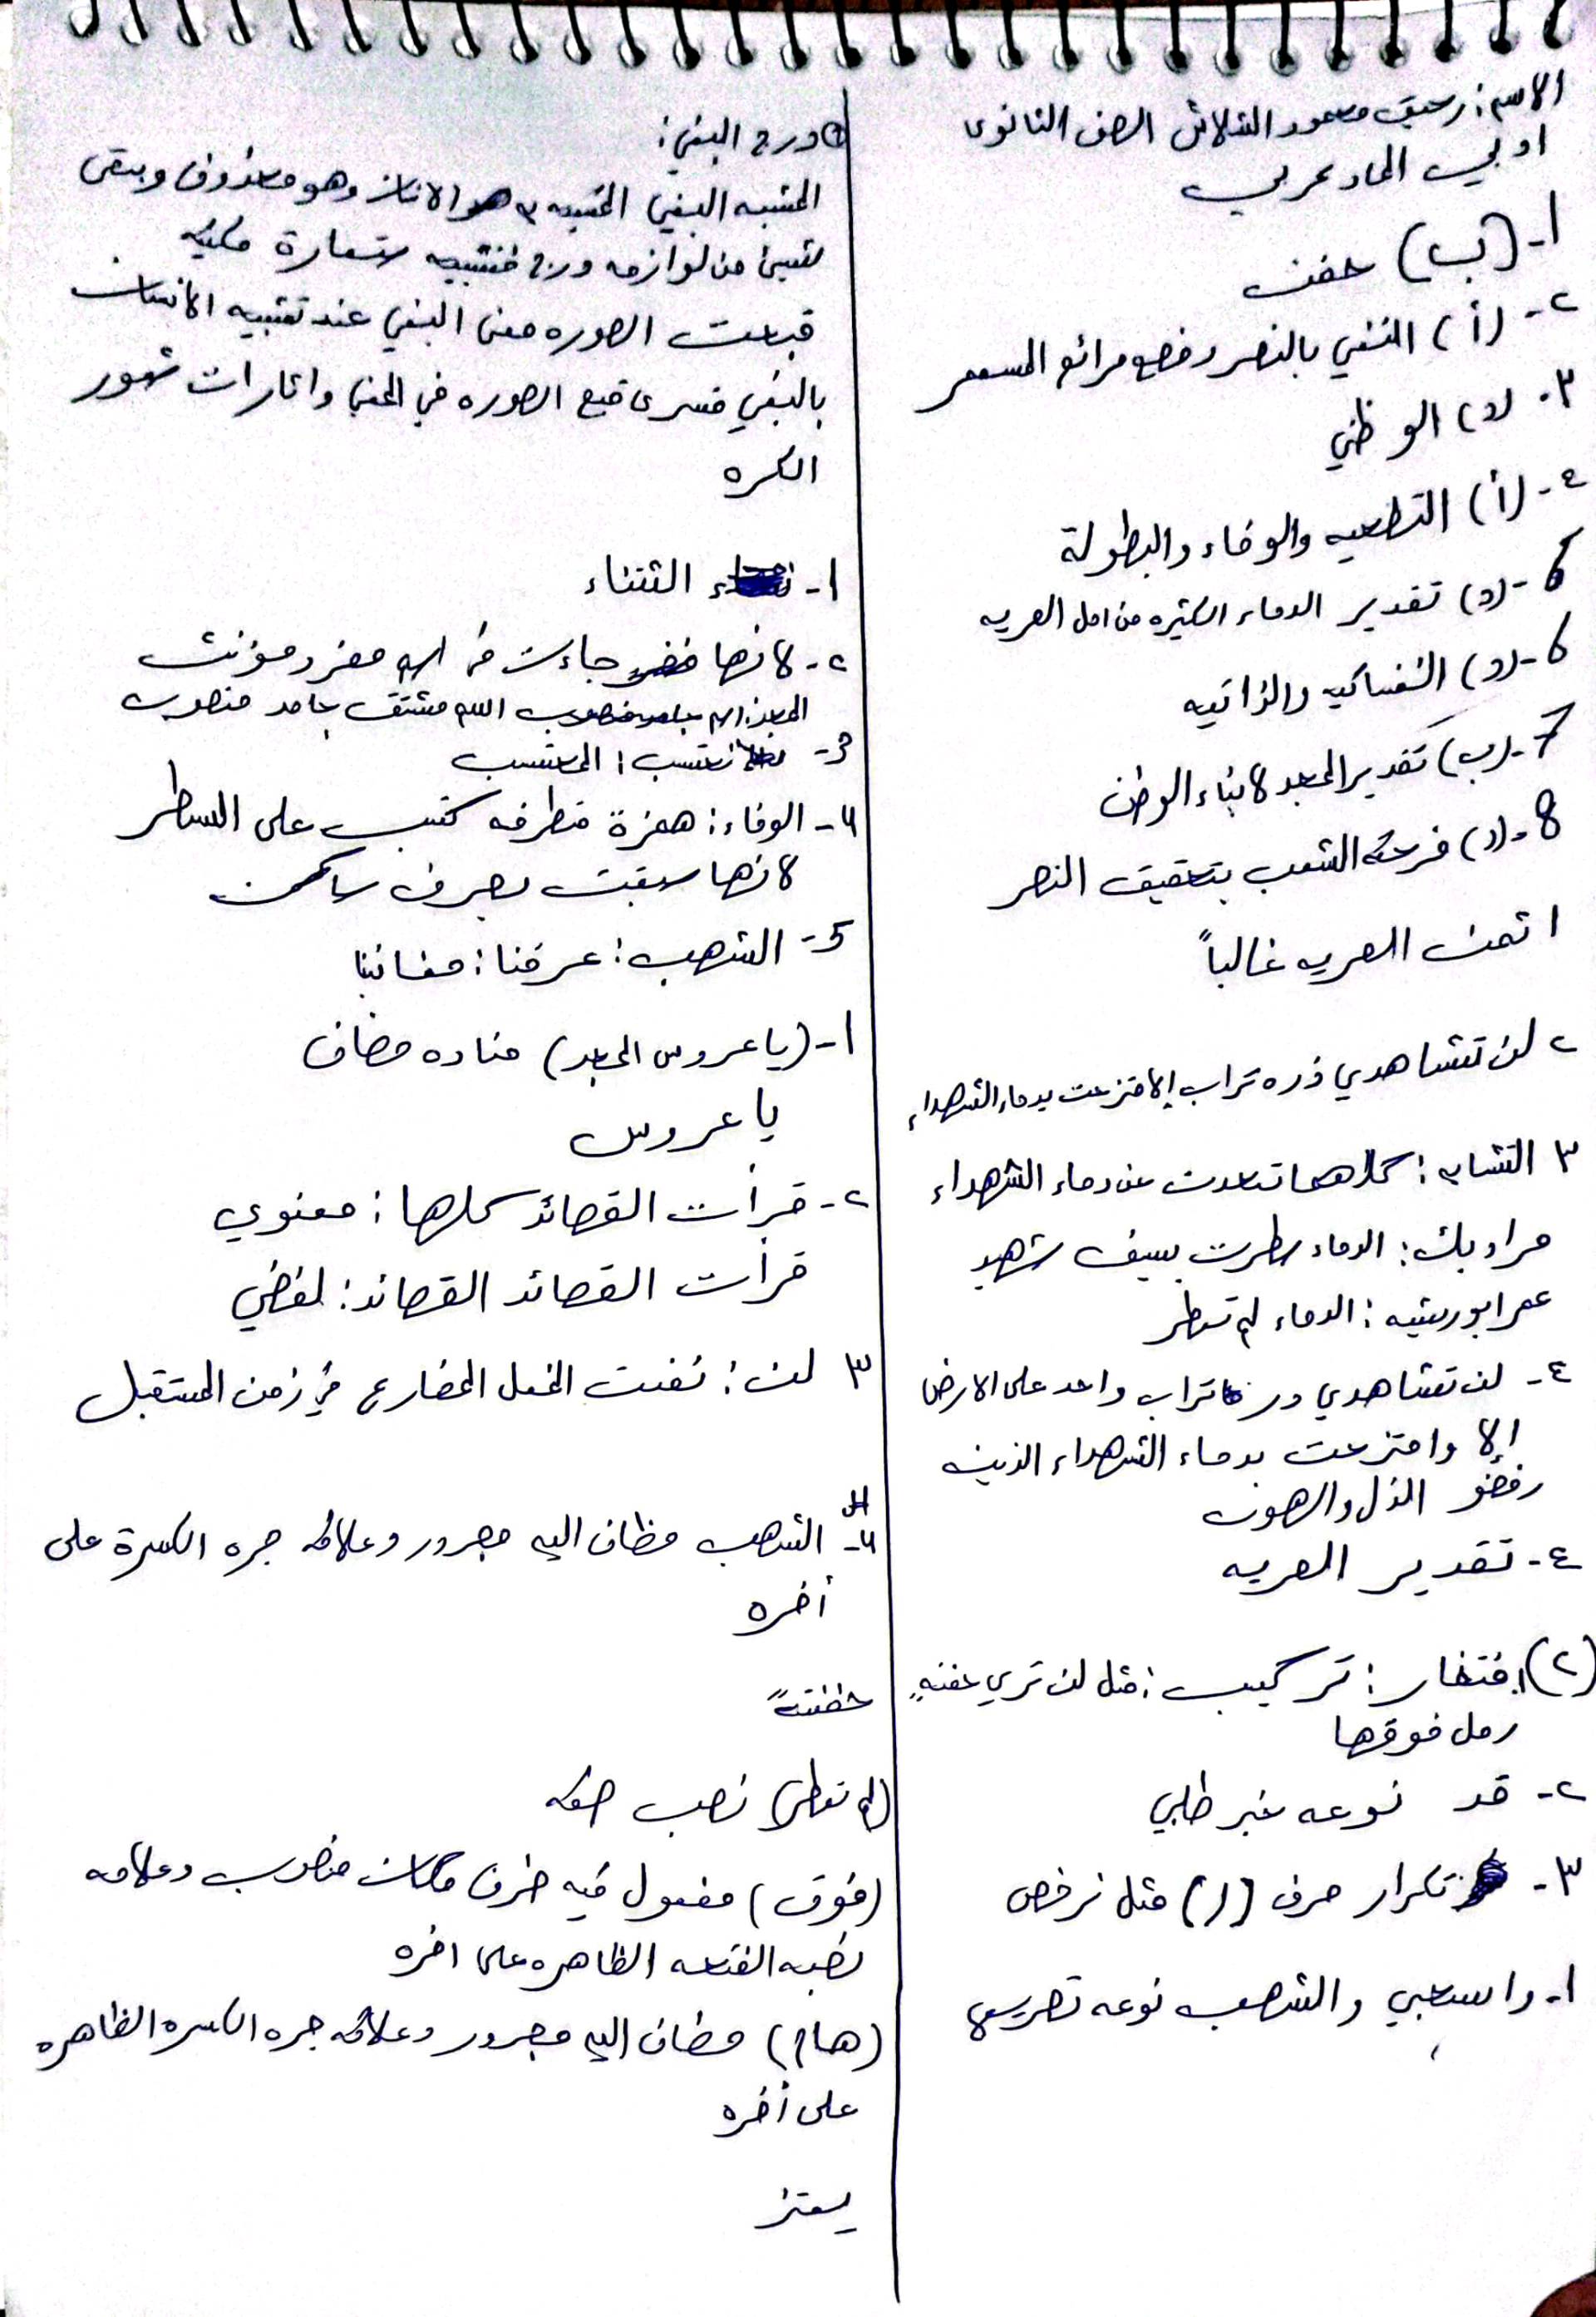 الاسم: رحيق محمود الشلاش الصف الثانوي
ادبي الماد عربي
1- (ب) حفنت
٢- (أ) التغني بالنصر وفضح مزائع المستعمر
٣- (د) الوطني
٤- (أ) التضحيه والوفاء والبطولة
6- (د) تقدير الدماء الكثيره من اجل الحريه
6- (د) النفساكيه والذاتيه
7- (ب) تقدير المجد لابناء الوطن
8- (د) فرحة الشعب بتحقيق النصر
1 ثمن الحريه غالباً
٢ لن تشاهدي ذره تراب إلا متزعت بدماء الشهداء
٣ التشابه: كلاهما تحدث عن دماء الشهداء
مراد بك: الدماء سطرت بسيف شهيد
عمر ابو ريشه: الدماء لم تسطر
٤- لن تشاهدي تراب واحد على الارض
إلا وامتزعت بدماء الشهداء الذين
رفضو الذل والهون
٤- تقدير الحريه
(٢) افتخار: تركيب: مثل لن تري حفنةٍ
رمل فوقها
٢- قد نوعه غير طلبي
٣- تكرار حرف (ر) مثل نرخص
1- واسحبي والشهب نوعه تصريع
درج البغي:
المشبه البغي المشبه به الانان وهو محذوف وبقى
شيئ من لوازمه استعارة مكنيه
قبحت الصوره معنى البغي عند تشبيه الانسان
بالبغي فسرى قبح الصوره في المعنى واثارات شعور
الكره
1- الثناء
٢- لانها جاءت في اسم مفرد مؤنث
اسم مشتق جامد منصوب
3- نحتسب: المحتسب
4- الوفاء: همزة متطرفه كتبت على السطر
لانها سبقت بحرف ساكن
5- الشهب: عرفنا: مغانينا
1- (يا عروس المجد) مناده مضاف
يا عروس
٢- قرأت القصائد كلها: معنوي
قرأت القصائد القصائد: لفضي
٣ لن: نفت الفعل المضارع في زمن المستقبل
4- الشهب مظاف اليه مجرور وعلامة جره الكسرة على
أخره
(لم تعطر) نصب صفه
(فوق) مفعول فيه ظرف مكان منصوب وعلامه
نصبه الفتحه الظاهره على اخره
(هام) مضاف اليه مجرور وعلامة جره الكسره الظاهره
على أخره
يعتز